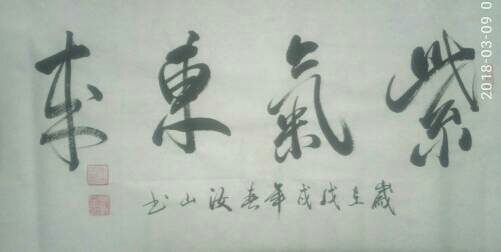 紫氣東來
歲在戊戌年春汝山书
2018-03-09 0